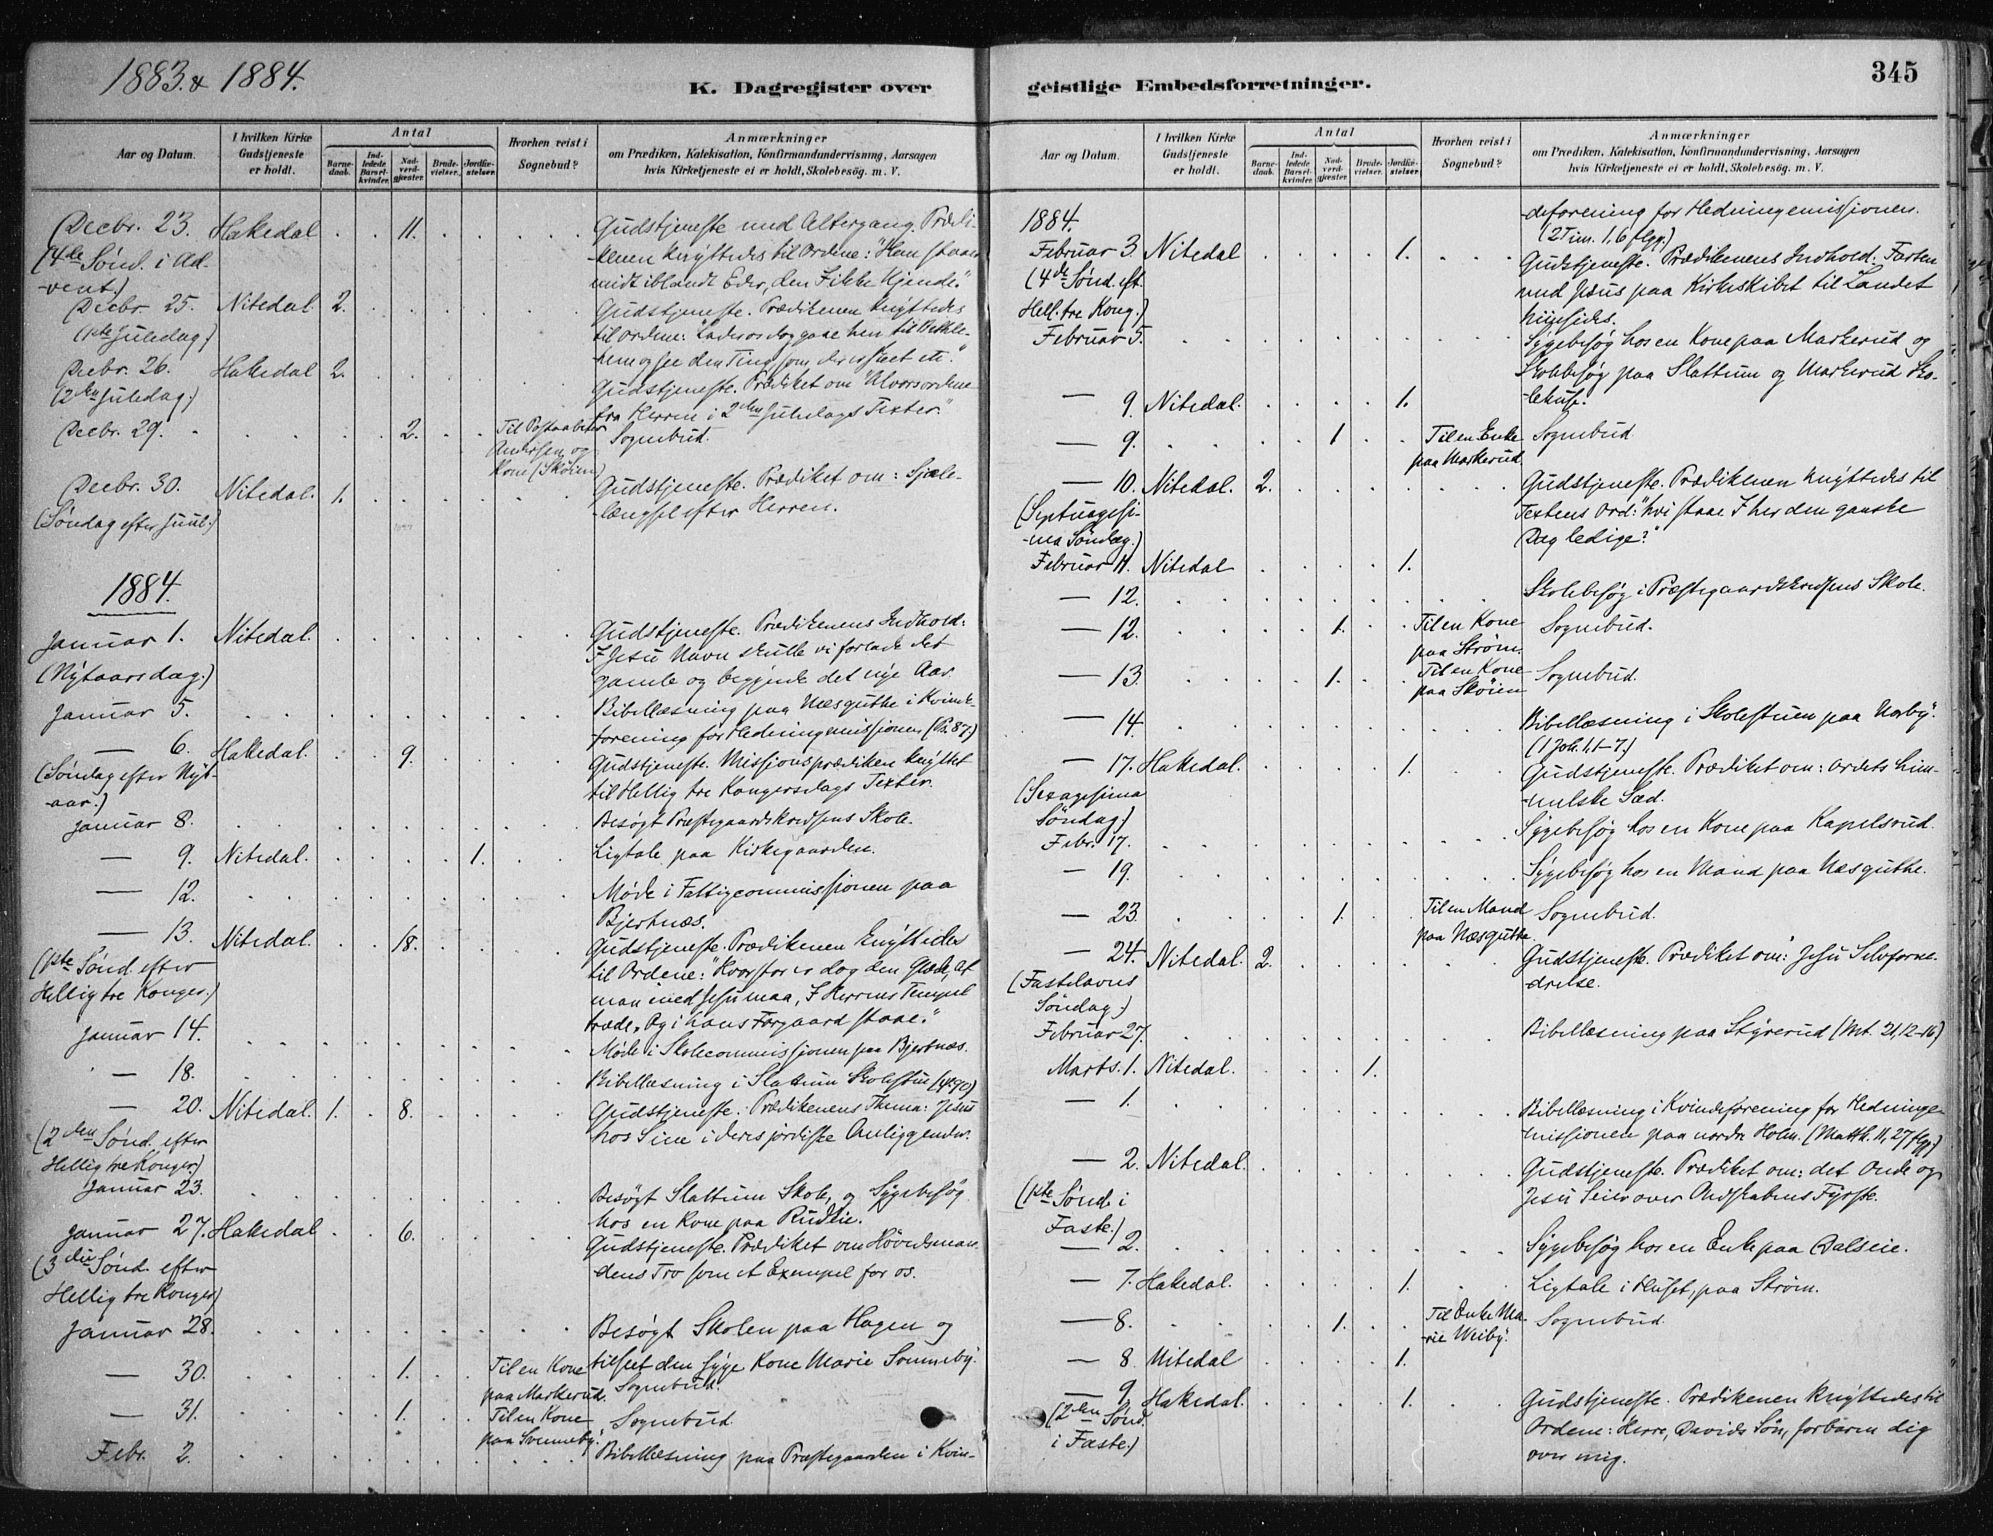 1883. & 1884.
K. Dagregister over
geistlige Embedsforretninger.
345
Aar og Datum.
I hvilken Kirke Gudstjeneste er holdt.
Antal
Barnedaab.
Indledede Barselkvinder.
Nadverdgjæster.
Brudevielser.
Jordfæstelser.
Hvorhen reist i Sognebud?
Anmærkninger
om Prædiken, Katekisation, Konfirmandundervisning, Aarsagen
hvis Kirketjeneste ei er holdt, Skolebesøg. m. V.
Decbr. 23. Hakedal . . 11. . . . . Gudstjeneste med Altergang. Prædi-
(4de Sønd. i Ad- -kenen knÿttedes til Ordene: "Han staar
-vent.) midt iblandt Eder, den I ikke kjende."
Decbr. 25. Nitedal 2. Gudstjeneste. Prædikenen knÿttedes
(1ste Juledag.) til Ordene: "Lader os dog gaae hen til Bethle-
hem og see den Ting, som der er skeet etc."
Decbr. 26. Hakedal 2. Gudstjeneste. Prædiket om "Alvorsordene
(2den Juledag.) fra Herren i 2den Juledags Texter."
Decbr. 29. 2. Til Postaabner Sognebud.
Andersen og
Kone (Skøien)
Decbr. 30. Nitedal. 1. Gudstjeneste. Prædiket om: Sjæle-
(Søndag efter Juul.) -længsel efter Herren.
1884.
Januar 1. Nitedal. Gudstjeneste. Prædikenens Indhold:
(Nÿtaarsdag.) I Jesu Navn skulle vi forlade det
gamle og begÿnde det nÿe Aar.
Januar 5. Bibellæsning paa Næsguthe i Kvinde-
forening for Hedningemissionen (Ps. 87.)
— 6. Hakedal. 9. Gudstjeneste. Missionsprædiken knÿttet
(Søndag efter Nÿt- til Hellig tre Kongersdags Texter.
-aar.)
Januar 8. Besøgt Præstegaardskredsens Skole.
— 9. Nitedal. 1. Ligtale paa Kirkegaarden.
— 12. Møde i Fattigcommissionen paa
Bjertnæs.
— 13. Nitedal. 18. Gudstjeneste. Prædikenen knÿttedes
(1ste Sønd. efter til Ordene: "Hvor stor er dog den Glæde, At
Hellig tre Konger.) man med Jesu maa, I Herrens Tempel
træde, Og i hans Forgaard staae."
Januar 14. Møde i Skolecommissionen paa Bjertnæs.
— 18. Bibellæsning i Slattum Skolestue
— 20. Nitedal. 1. 8. Gudstjeneste: Prædikenens Thema: Jesus
(2den Sønd. efter hos Sine i deres jordiske Anliggender.
Hellig tre Konger.)
Januar 23. Besøgt Slattum Skole, og Sÿgebesøg
hos en Kone paa Rudseie.
Januar 27. Hakedal 6. Gudstjeneste. Prædiket om Høvedsman-
(3die Sønd. efter dens Tro som et Exempel for os.
Hellig tre Konger)
Januar 28. Besøgt Skolen paa Hagen og
tilseet den sÿge Kone Marie Sonnebÿ.
— 30. 1. Til en Kone Sognebud.
paa Markerud.
— 31. 1. Til en Kone Sognebud.
paa Svennebÿ.
Febr. 2. Bibellæsning paa Præstegaarden i Kvin-
Aar og Datum.
I hvilken Kirke Gudstjeneste er holdt.
Antal
Barnedaab.
Indledede Barselkvinder.
Nadverdgjæster.
Brudevielser.
Jordfæstelser.
Hvorhen reist i Sognebud?
Anmærkninger
om Prædiken, Katekisation, Konfirmandundervisning, Aarsagen
hvis Kirketjeneste ei er holdt, Skolebesøg. m. V.
1884. -deforening for Hedningemissionen.
(2 Tim. 1, 6 flgg.)
Februar 3. Nitedal 1. Gudstjeneste. Prædikenens Indhold: Farten
(4de Sønd. eft. med Jesus paa Kirkeskibet til Landet
Hell. tre Kong.) hiinsides.
Februar 5. Sÿgebesøg hos en Kone paa Markerud og
Skolebesøg paa Slattum og Markerud Sko-
-lehuse.
— 9. Nitedal. 1.
— 9. 1 Til en Enke Sognebud
paa Markerud
— 10. Nitedal. 2. Gudstjeneste. Prædikenen knÿttedes til
(Septuagesi- Textens Ord: "hvi staae I her den ganske
-ma Søndag.) Dag ledige?"
Februar 11. Nitedal 1.
— 12. Skolebesøg i Præstegaardskredsens Skole.
— 12. 1. Til en Kone Sognebud.
paa Strøm.
— 13. 1. Til en Kone Sognebud.
paa Skøien
— 14. Bibellæsning i Skolestuen paa Norbÿ.
(1 Joh. 1, 1–7.)
— 17. Hakedal. 1. Gudstjeneste. Prædiket om: Ordets him-
(Sexagesima -melske Sæd.
Søndag)
Febr. 17. Sÿgebesøg hos en Kone paa Kapelsrud.
— 19. Sÿgebesøg hos en Mand paa Næsguthe.
— 23 1. Til en Mand Sognebud.
paa Næsguthe.
— 24. Nitedal. 2. Gudstjeneste. Prædiket om: Jesu Selvforne-
(Fastelavns -drelse.
Søndag.)
Februar 27. Bibellæsning paa Stÿrerud (Mt. 21, 12–16)
Marts. 1. Nitedal. 1.
— 1. Bibellæsning i Kvindeforening for Hedninge-
missionen paa nordre Holm. (Matth. 11, 27 flgg.)
— 2. Nitedal. Gudstjeneste. Prædiket om: det Onde og
(1ste Sønd. i Jesu Seier over Ondskabens Fÿrste.
Faste.)
— 2. Sÿgebesøg hos en Enke paa Dalseie.
— 7. Hakedal. 1. Ligtale i Huset, paa Strøm.
— 8. 1. Til Enke Ma- Sognebud.
-rie Weibÿ.
— 8 Nitedal 1.
— 9. Hakedal. 1. Gudstjeneste. Prædikenen knÿttedes til
(2den Sønd. Ordene: Herre, Davids Søn, forbarm dig
i Faste.) over mig.